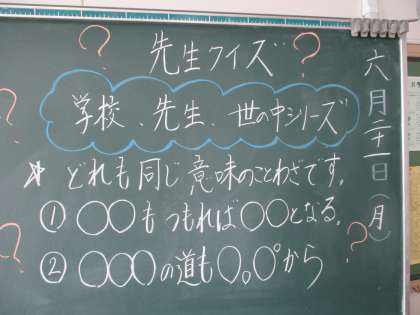 先生クイズ
学校、先生、世の中シリーズ
☆どれも同じ意味のことわざです。
①○○もつもれば○○となる。
②○○○の道も○。○°から
六月二十一日(月)